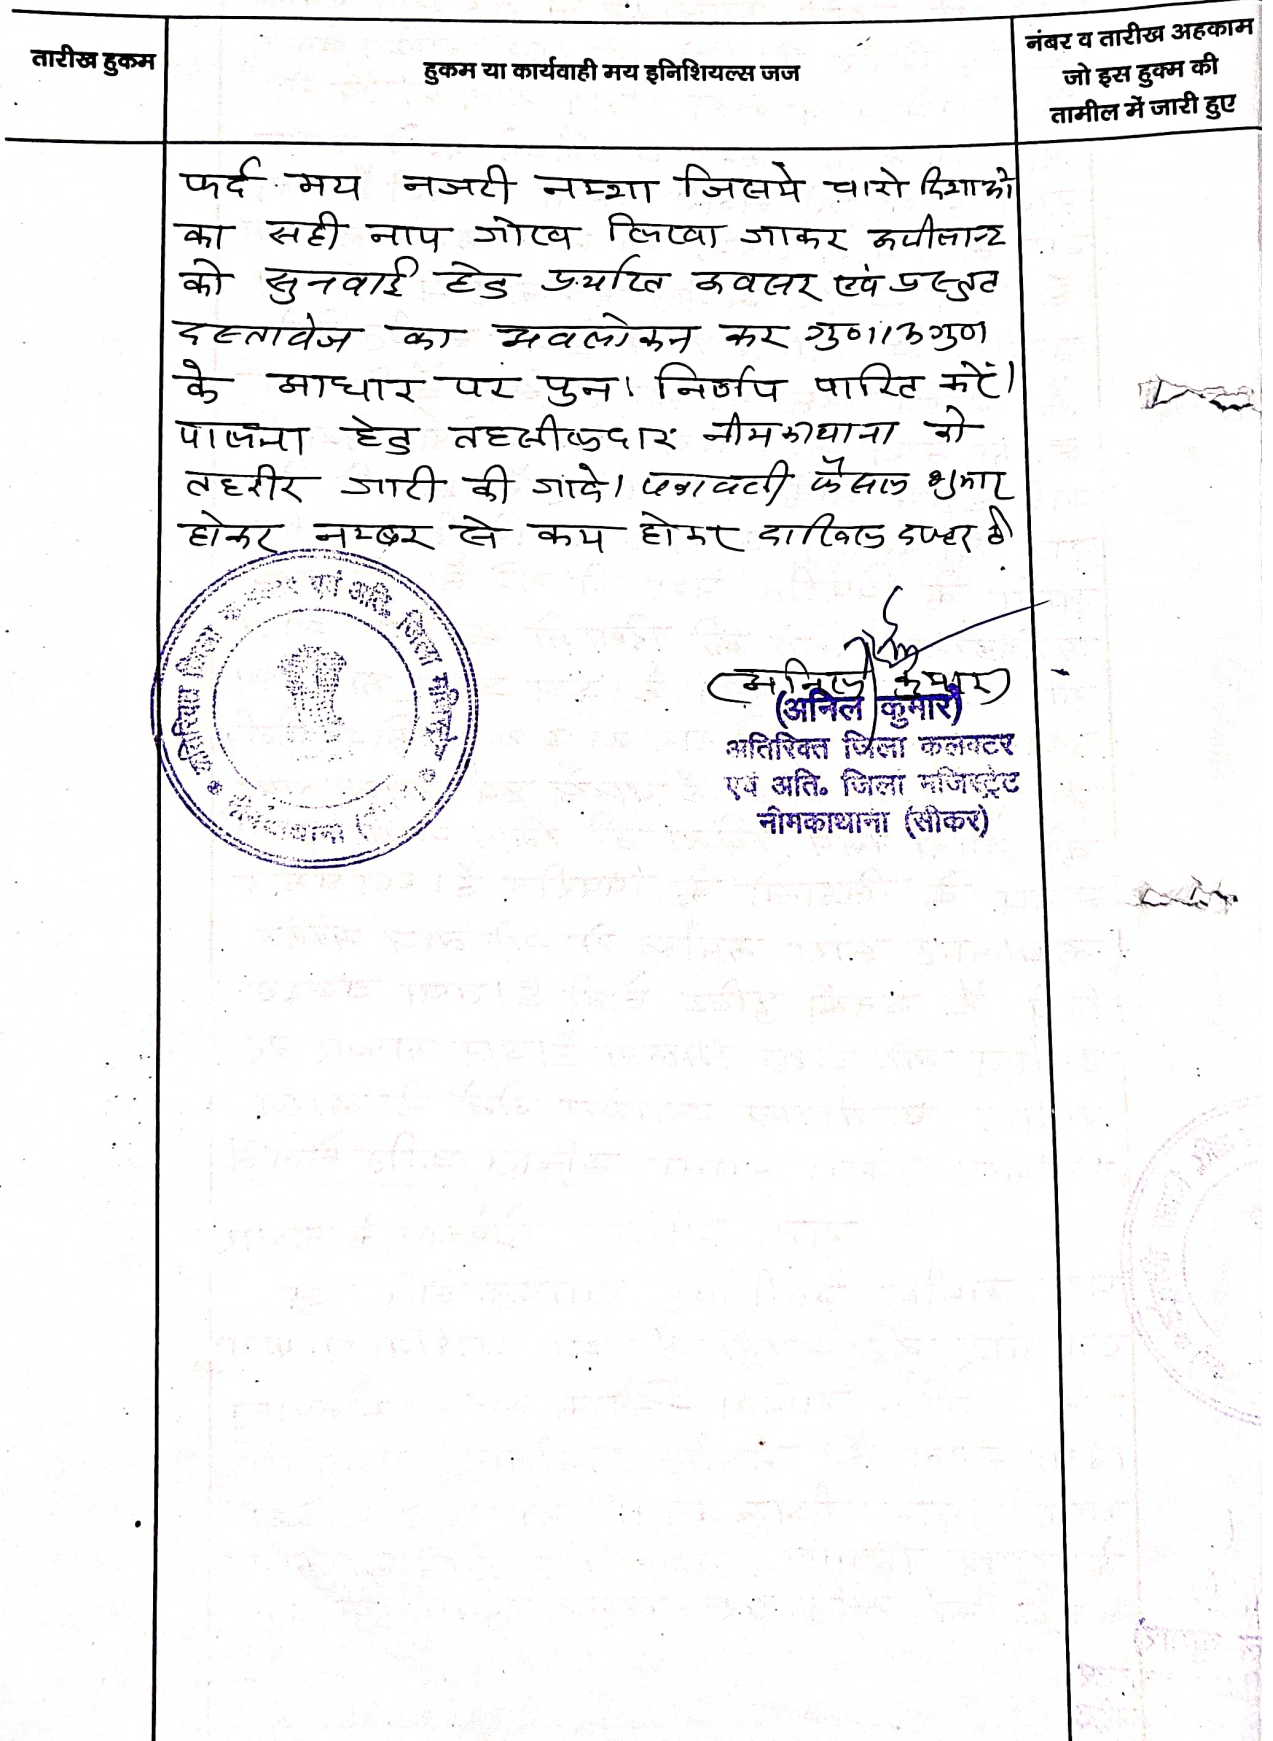 तारीख हुकम
हुकम या कार्यवाही मय इनिशियल्स जज
नंबर व तारीख अहकाम
जो इस हुक्म की
तामील में जारी हुए
फर्द मय नजरी नक्शा जिसमे चारो दिशाओ
का सही नाप जोख लिखा जाकर अपीलान्ट
को सुनवाई हेतु पर्याप्त अवसर एवं प्रस्तुत
दस्तावेज का अवलोकन कर गुणावगुण
के आधार पर पुनः निर्णय पारित करें।
पालना हेतु तहसीलदार नीमकाथाना को
तहरीर जारी की जावे। पत्रावली फैसल शुमार
होकर नम्बर से कम होकर दाखिल दफ्तर हो
(अनिल कुमार)
(अनिल कुमार)
अतिरिक्त जिला कलक्टर
एवं अति. जिला मजिस्ट्रेट
नीमकाथाना (सीकर)
अतिरिक्त जिला कलक्टर एवं अति. जिला मजिस्ट्रेट
नीमकाथाना